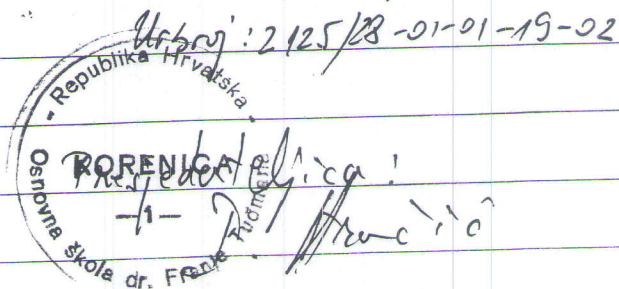 Urbroj: 2125/28-01-01-19-02
- Republika Hrvatska -
Osnovna škola dr. Franje Tuđmana
KORENICA
-1-
Predsjednica: